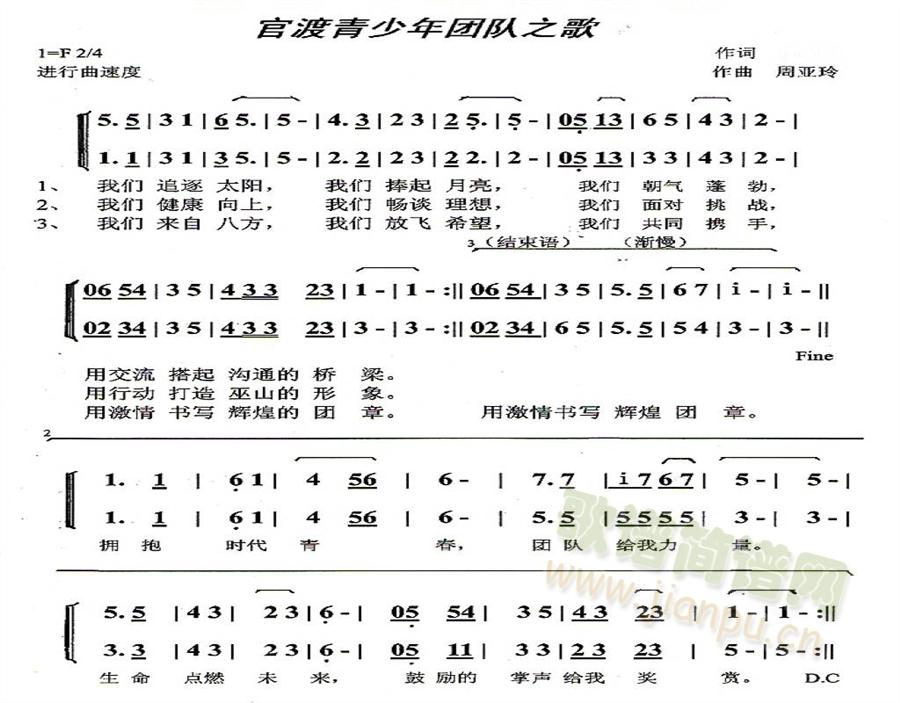 官渡青少年团队之歌
1=F 2/4 作词
进行曲速度 作曲 周亚玲
5. 5 | 3 1 | 6 5. | 5 - | 4. 3 | 2 3 | 2 5. | 5 - | 05 13 | 6 5 | 4 3 | 2 - |
1. 1 | 3 1 | 6 5. | 5 - | 2. 2 | 2 3 | 2 2. | 2 - | 05 13 | 3 3 | 4 3 | 2 - |
1、 我们 追逐 太阳, 我们 捧起 月亮, 我们 朝气 蓬 勃,
2、 我们 健康 向上, 我们 畅谈 理想, 我们 面对 挑 战,
3、 我们 来自 八方, 我们 放飞 希望, 我们 共同 携 手,
3 (结束语) (渐慢)
06 54 | 3 5 | 4 3 3 23 | 1 - | 1 - :|| 06 54 | 3 5 | 5. 5 | 6 7 | i - | i - ||
02 34 | 3 5 | 4 3 3 23 | 3 - | 3 - :|| 02 34 | 6 5 | 5. 5 | 5 4 | 3 - | 3 - ||
Fine
用交流 搭起 沟通的 桥 梁。
用行动 打造 巫山的 形 象。
用激情 书写 辉煌的 团 章。 用激情书写 辉煌 团 章。
2
1. 1 | 6 1 | 4 56 | 6 - | 7. 7 | i 7 6 7 | 5 - | 5 - |
1. 1 | 6 1 | 4 56 | 6 - | 5. 5 | 5 5 5 5 | 3 - | 3 - |
拥 抱 时代 青 春, 团 队 给我力 量。
5. 5 | 4 3 | 2 3 | 6 - | 05 54 | 3 5 | 4 3 23 | 1 - | 1 - :||
3. 3 | 4 3 | 2 3 | 6 - | 05 11 | 3 5 | 4 3 23 | 5 - | 5 - :||
生 命 点燃 未 来, 鼓励的 掌声 给我 奖 赏。 D.C
歌谱简谱网
www.jianpu.cn